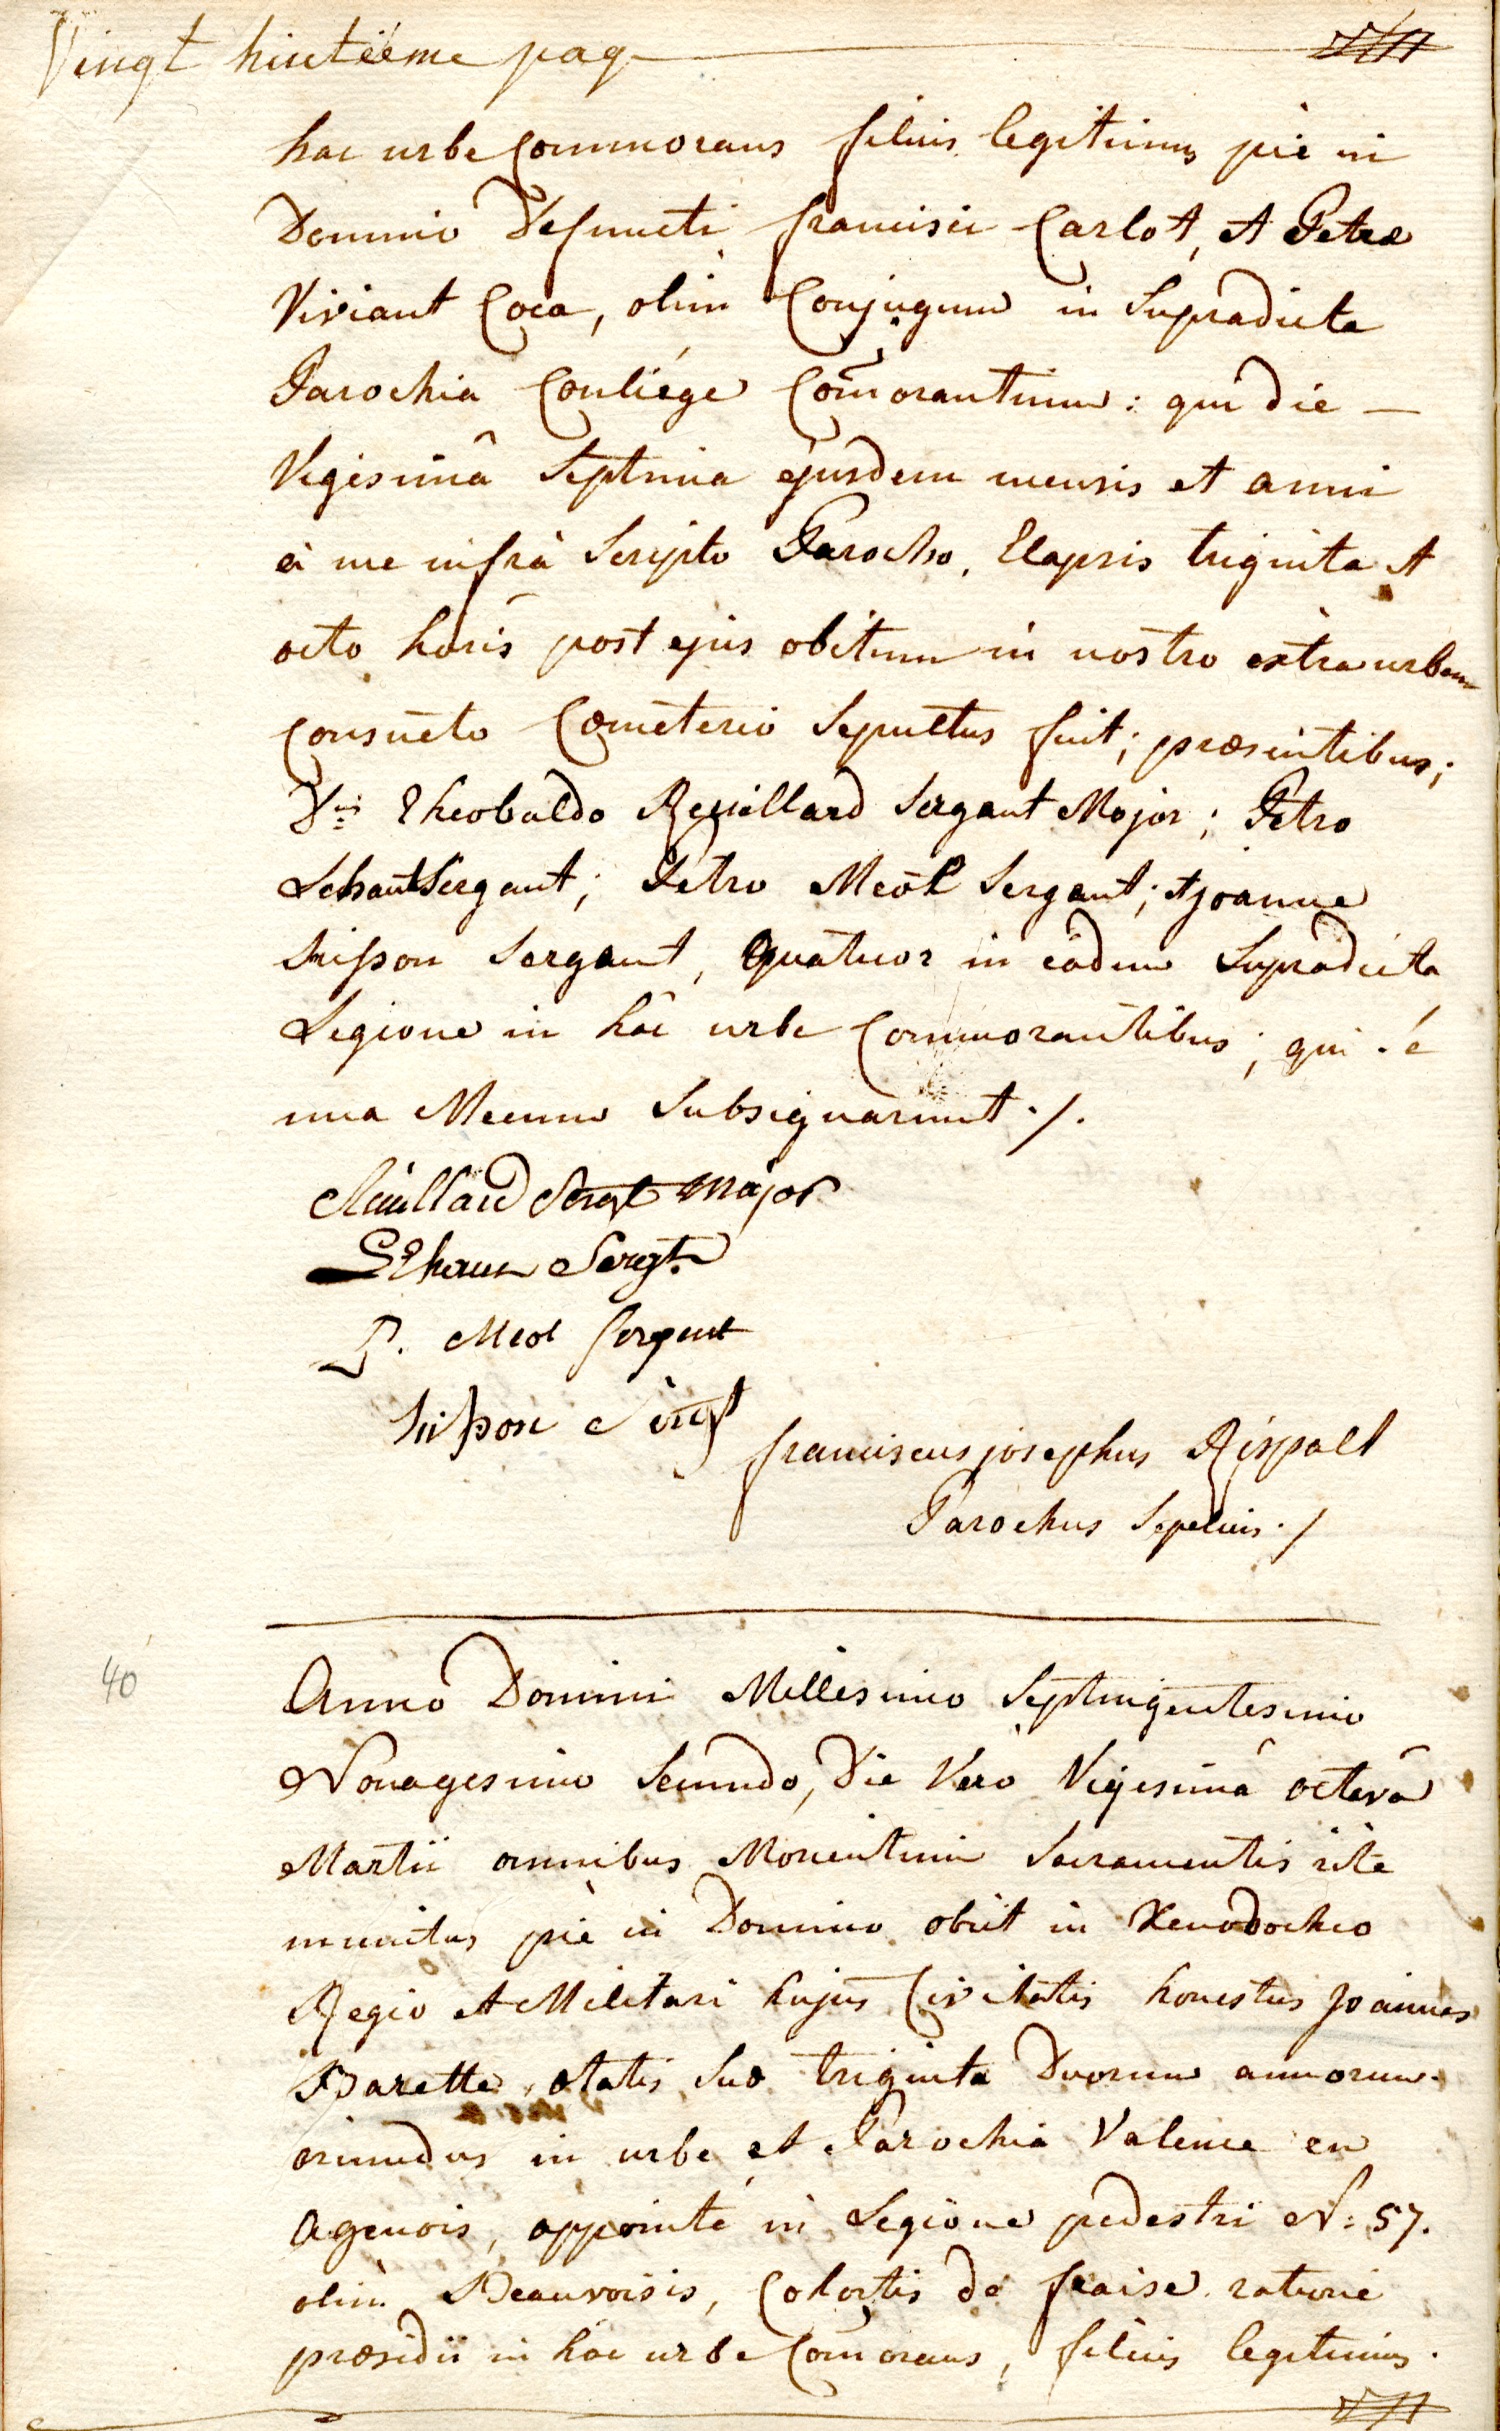 Vingt huitiéme pag
hac urbe Commorans filius legitimus piè in
Domino Defuncti francisci Carlot, et Petræ
Viviant Coca, olim Conjugum in Supradicta
Parochia Conliége Com̃orantium: qui die —
Vigesimâ Septima ejusdem mensis et anni
à me infrà Scripto Parocho, Elapsis triginta et
octo horis post ejus obitum in nostro extra urbem
Consueto Cœmeterio Sepultus fuit; præsentibus;
Dnis Theobaldo Revillard Sergant Major; Petro
Lehaut Sergant; Petro Meol Sergant; et joanne
Suisson Sergant, Quatuor in eâdem Supradicta
Legione in hâc urbe Commorantibus; qui é
una Mecum Subsignarunt ./.
Sergt Major
Sergt.
P. Meol Sergent
franciscus josephus Rispalt
Parochus Sepelivi ./
40
Anno Domini Millesimo Septingentesimo
Nonagesimo Secundo, Die Vero Vigesimâ octavâ
Martii omnibus Morientium Sacramentis rite
munitus piè in Domino obiit in Xenodochio
Regio et Militari hujus Civitatis honestus Joannes
Barette, ætatis Suæ triginta Duorum annorum.
oriundus in urbe et Parochia Valence en
Agenois, appointé in Legione pedestri N: 57.
olim Beauvoisis, Cohortis de fraise ratione
præsidii in hac urbe Com̃orans, filius legitimus.